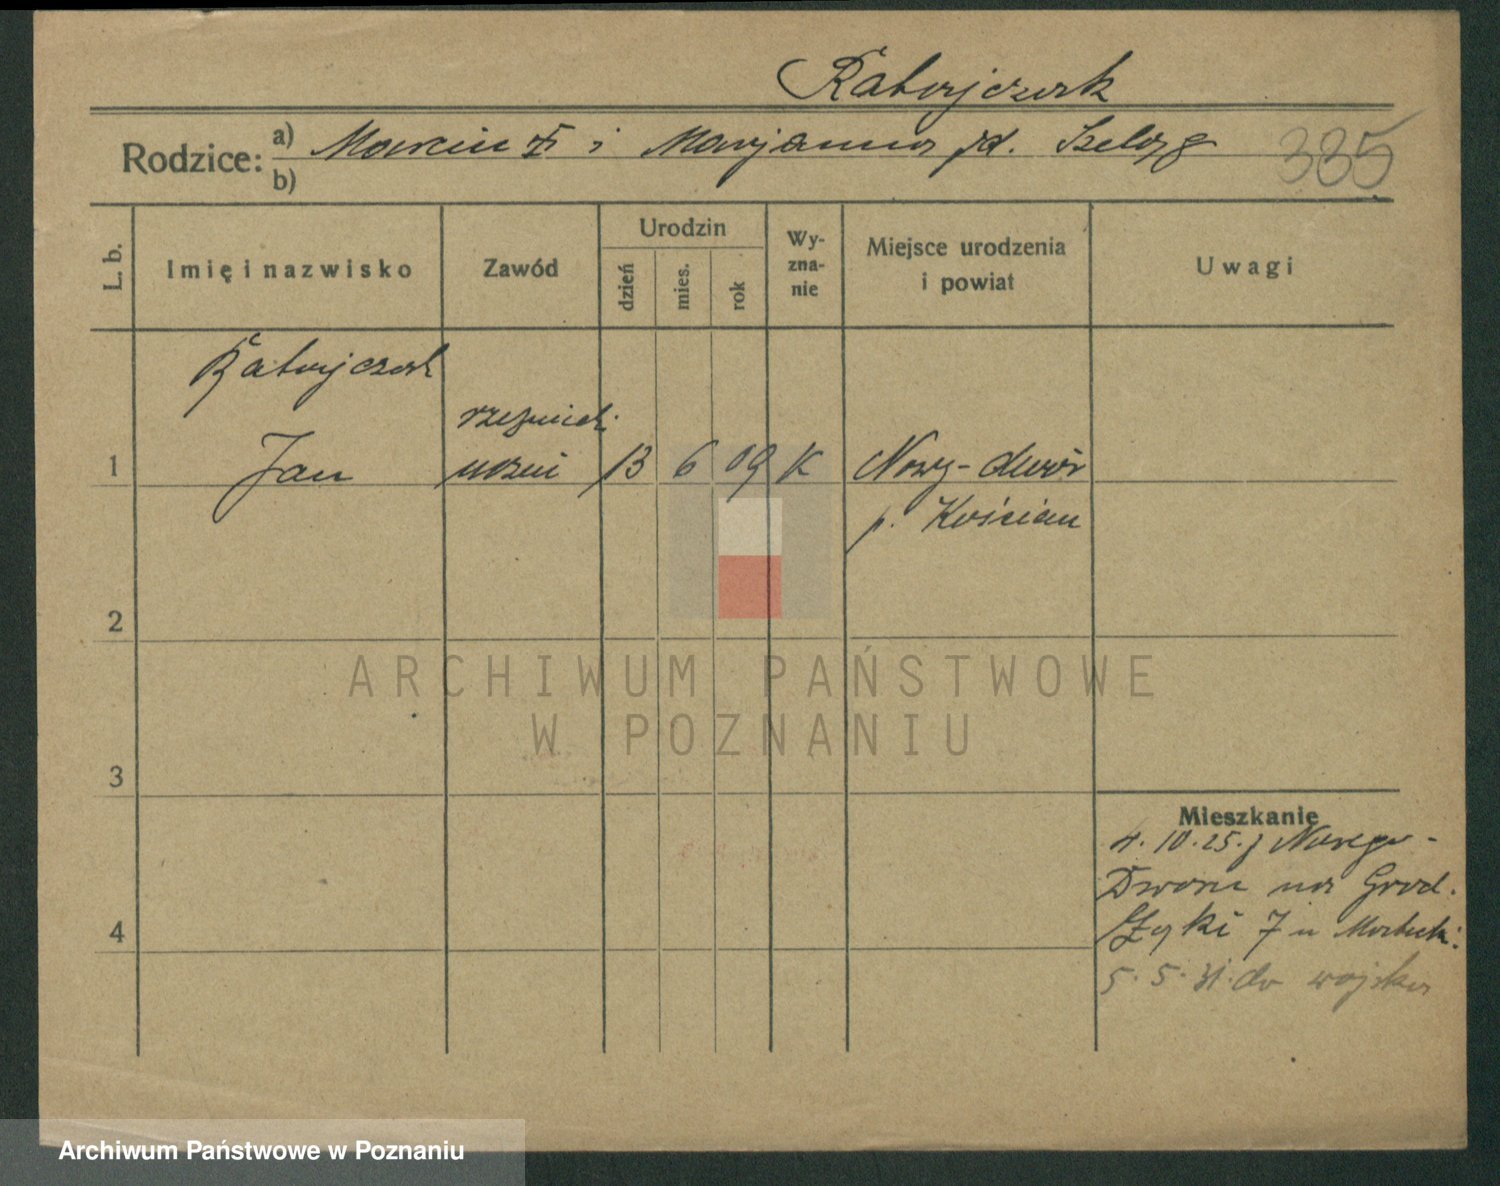 Ratajczak
Rodzice:
a) Marcin i Marjanna zd. Szeląg
b)
385
L. b.
Imię i nazwisko
Zawód
Urodzin
dzień
mies.
rok
Wy-
zna-
nie
Miejsce urodzenia
i powiat
Uwagi
Ratajczak
Jan
rzeźnicki
uczeń
1
13
6
09
K
Nowy-dwór
p. Kościan
2
3
4
Mieszkanie
4.10.25. z Nowego-
Dworu na Grod.
7 u
5.5.31. do wojska
ARCHIWUM PAŃSTWOWE
W POZNANIU
Archiwum Państwowe w Poznaniu